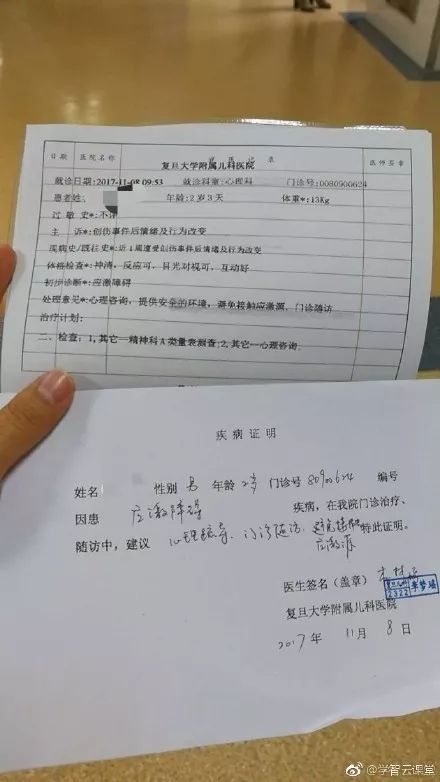 日期 医院名称 记录 医师签章
复旦大学附属儿科医院
就诊日期:2017-11-08 09:53 就诊科室:心理科 门诊号:0080900624
患者姓 年龄:2岁3天 体重*:13Kg
过敏史*:不详
主 诉*:创伤事件后情绪及行为改变
现病史/既往史*:近1周遭受创伤事件后情绪及行为改变
体格检查*:神清,反应可,目光对视可,互动好
初步诊断*:应激障碍
处理意见*:心理咨询,提供安全的环境,避免接触应激源,门诊随访
治疗计划:
二、检查:1,其它--精神科A类量表测查;2,其它--心理咨询
疾病证明
姓名 性别 男 年龄 2岁 门诊号 80900624 编号
因患 应激障碍 疾病,在我院门诊治疗、
随访中,建议 心理疏导、门诊随访、避免接触 特此证明。
应激源
医生签名(盖章)
2322 李梦瑶
复旦大学附属儿科医院
2017年 11月 8日
@学智云课堂